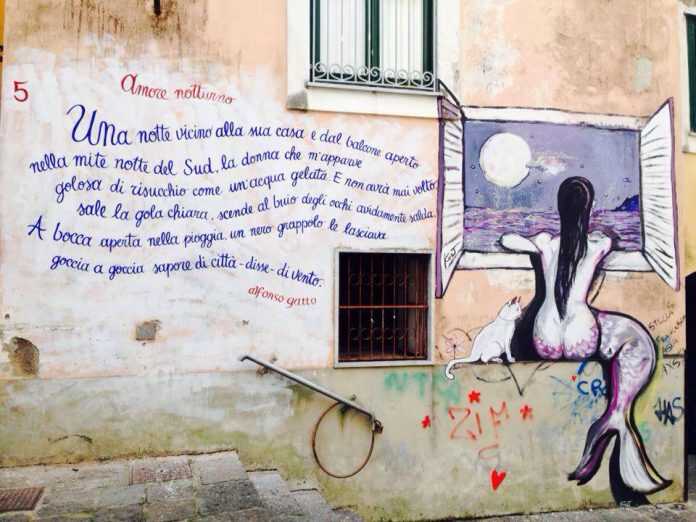 5
Amore notturno
Una notte vicino alla sua casa e dal balcone aperto
nella mite notte del Sud, la donna che m'apparve
golosa di risucchio come un'acqua gelata. E non avrà mai volto,
sale la gola chiara, scende al buio degli occhi avidamente salida.
A bocca aperta nella pioggia, un nero grappolo le lasciava
goccia a goccia sapore di città - disse - di vento.
alfonso gatto
ZIM